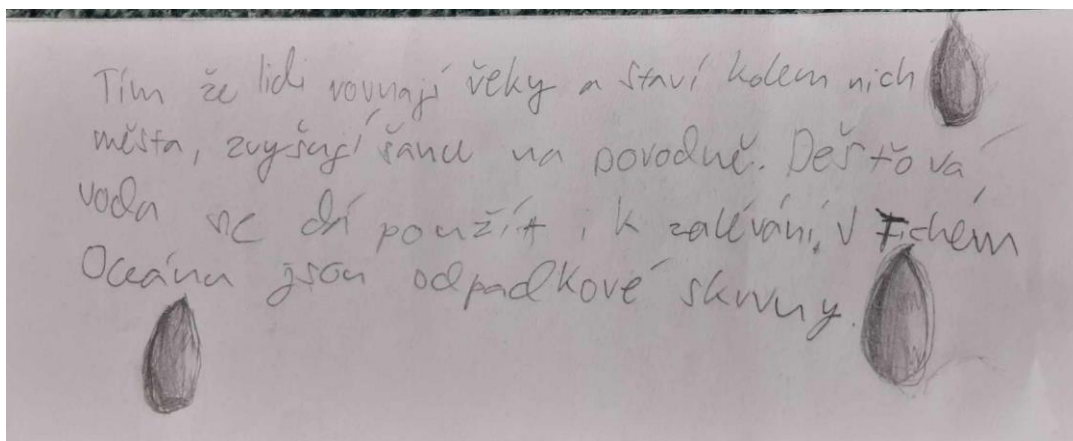 Tím že lidi rovnají řeky a staví kolem nich
města, zvyšují šanci na povodně. Dešťová
voda se dá použít i k zalévání. V Tichém
Oceánu jsou odpadkové skvrny.